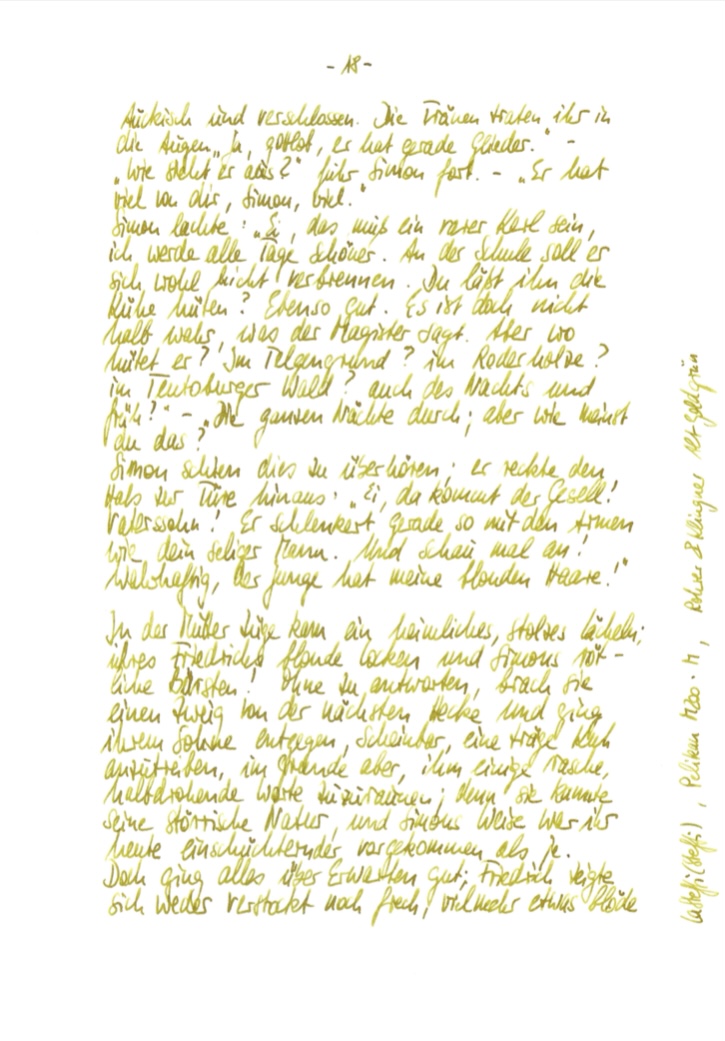 - 18 -
tückisch und verschlossen. Die Tränen traten ihr in
die Augen. „Ja, gottlob, er hat gerade Glieder." -
„Wie sieht er aus?" fuhr Simon fort. - „Er hat
viel von dir, Simon, viel."
Simon lachte: „Ei, das muß ein rarer Kerl sein,
ich werde alle Tage schöner. An der Schule soll er
sich wohl nicht verbrennen. Du läßt ihn die
Kühe hüten? Ebenso gut. Es ist doch nicht
halb wahr, was der Magister sagt. Aber wo
hütet er? Im Telgengrund? im Roderholze?
im Teutoburger Wald? auch des Nachts und
früh?" - „Die ganzen Nächte durch; aber wie meinst
du das?"
Simon schien dies zu überhören; er reckte den
Hals zur Türe hinaus: „Ei, da kommt der Gesell!
Vaterssohn! Er schlenkert gerade so mit den Armen
wie dein seliger Mann. Und schau mal an!
Wahrhaftig, der Junge hat meine blonden Haare!"
In der Mutter Züge kam ein heimliches, stolzes Lächeln;
ihres Friedrichs blonde Locken und Simons röt-
liche Bürsten! Ohne zu antworten, brach sie
einen Zweig von der nächsten Hecke und ging
ihrem Sohne entgegen, scheinbar, eine träge Kuh
anzutreiben, im Grunde aber, ihm einige rasche,
halbdrohende Worte zuzuraunen; denn sie kannte
seine störrische Natur, und Simons Weise war ihr
heute einschüchternder vorgekommen als je.
Doch ging alles über Erwarten gut; Friedrich zeigte
sich weder verstockt noch frech, vielmehr etwas blöde
(Steffi), Pelikan M200 · M, Rohrer & Klingner Alt-Goldgrün